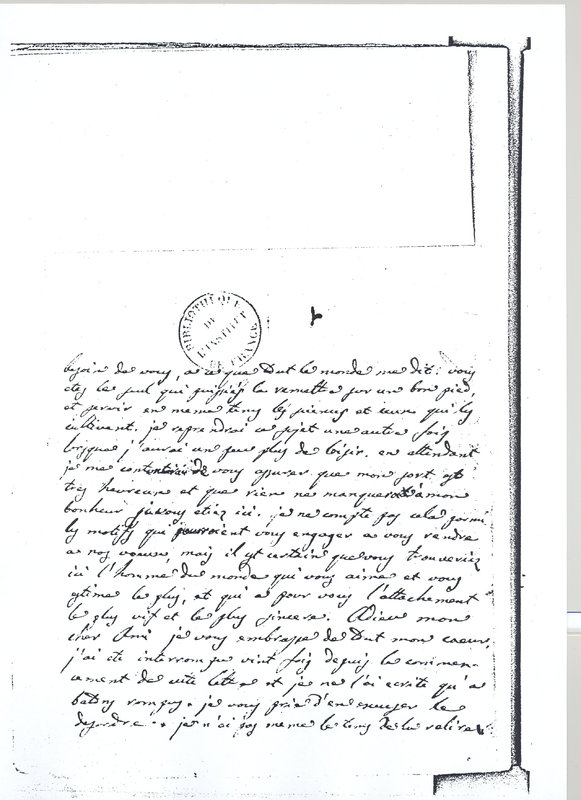 BIBLIOTHEQUE
DE
L'INSTITUT
DE FRANCE
besoin de vous, a ce que tout le monde me dit: vous
etes le seul qui puissiés la remettre sur un bon pied,
et servir en meme tems les sciences et ceux qui les
cultivent. je reprendrai ce sujet une autre fois
lorsque j'aurai un peu plus de loisir. en attendant
je me contenterai de vous assurer que mon sort est
tres heureux et que rien ne manqueroit a mon
bonheur si vous etiez ici. je ne compte pas cela parmi
les motifs qui pourroient vous engager a vous rendre
a nos voeux, mais il est certain que vous trouveriez
ici l'homme du monde qui vous aime et vous
estime le plus, et qui a pour vous l'attachement
le plus vif et le plus sincere. Adieu mon
cher Ami je vous embrasse de tout mon coeur,
j'ai eté interrompu vint fois depuis le commen-
cement de cette lettre et je ne l'ai ecrite qu'a
batons rompus. je vous prie d'en excuser le
desordre. je n'ai pas meme le tems de la relire.